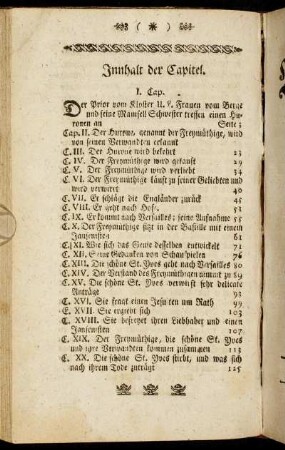 ( * )
Innhalt der Capitel.
I. Cap.
Der Prior vom Kloster U. L. Frauen vom Berge
und seine Mamsell Schwester treffen einen Hu-
ronen an Seite 3
Cap. II. Der Hurone, genannt der Freymüthige, wird
von seinen Verwandten erkannt
C. III. Der Hurone wird bekehrt 23
C. IV. Der Freymüthige wird getauft 29
C. V. Der Freymüthige wird verliebt 34
C. VI. Der Freymüthige läuft zu seiner Geliebten und
wird verwirrt 40
C. VII. Er schlägt die Engländer zurück 45
C. VIII. Er geht nach Hofe. 51
C. IX. Er kommt nach Versailles; seine Aufnahme 55
C. X. Der Freymüthige sitzt in der Bastille mit einem
Jansenisten 61
C. XI. Wie sich das Genie desselben entwickelt 71
C. XII. Seine Gedanken von Schauspielen 76
C. XIII. Die schöne St. Yves geht nach Versailles 80
C. XIV. Der Verstand des Freymüthigen nimmt zu 89
C. XV. Die schöne St. Yves verwirft sehr delicate
Anträge 93
C. XVI. Sie fragt einen Jesuiten um Rath 99
C. XVII. Sie ergiebt sich 103
C. XVIII. Sie befreyet ihren Liebhaber und einen
Jansenisten 107
C. XIX. Der Freymüthige, die schöne St. Yves
und ihre Verwandten kommen zusammen 113
C. XX. Die schöne St. Yves stirbt, und was sich
nach ihrem Tode zuträgt 125